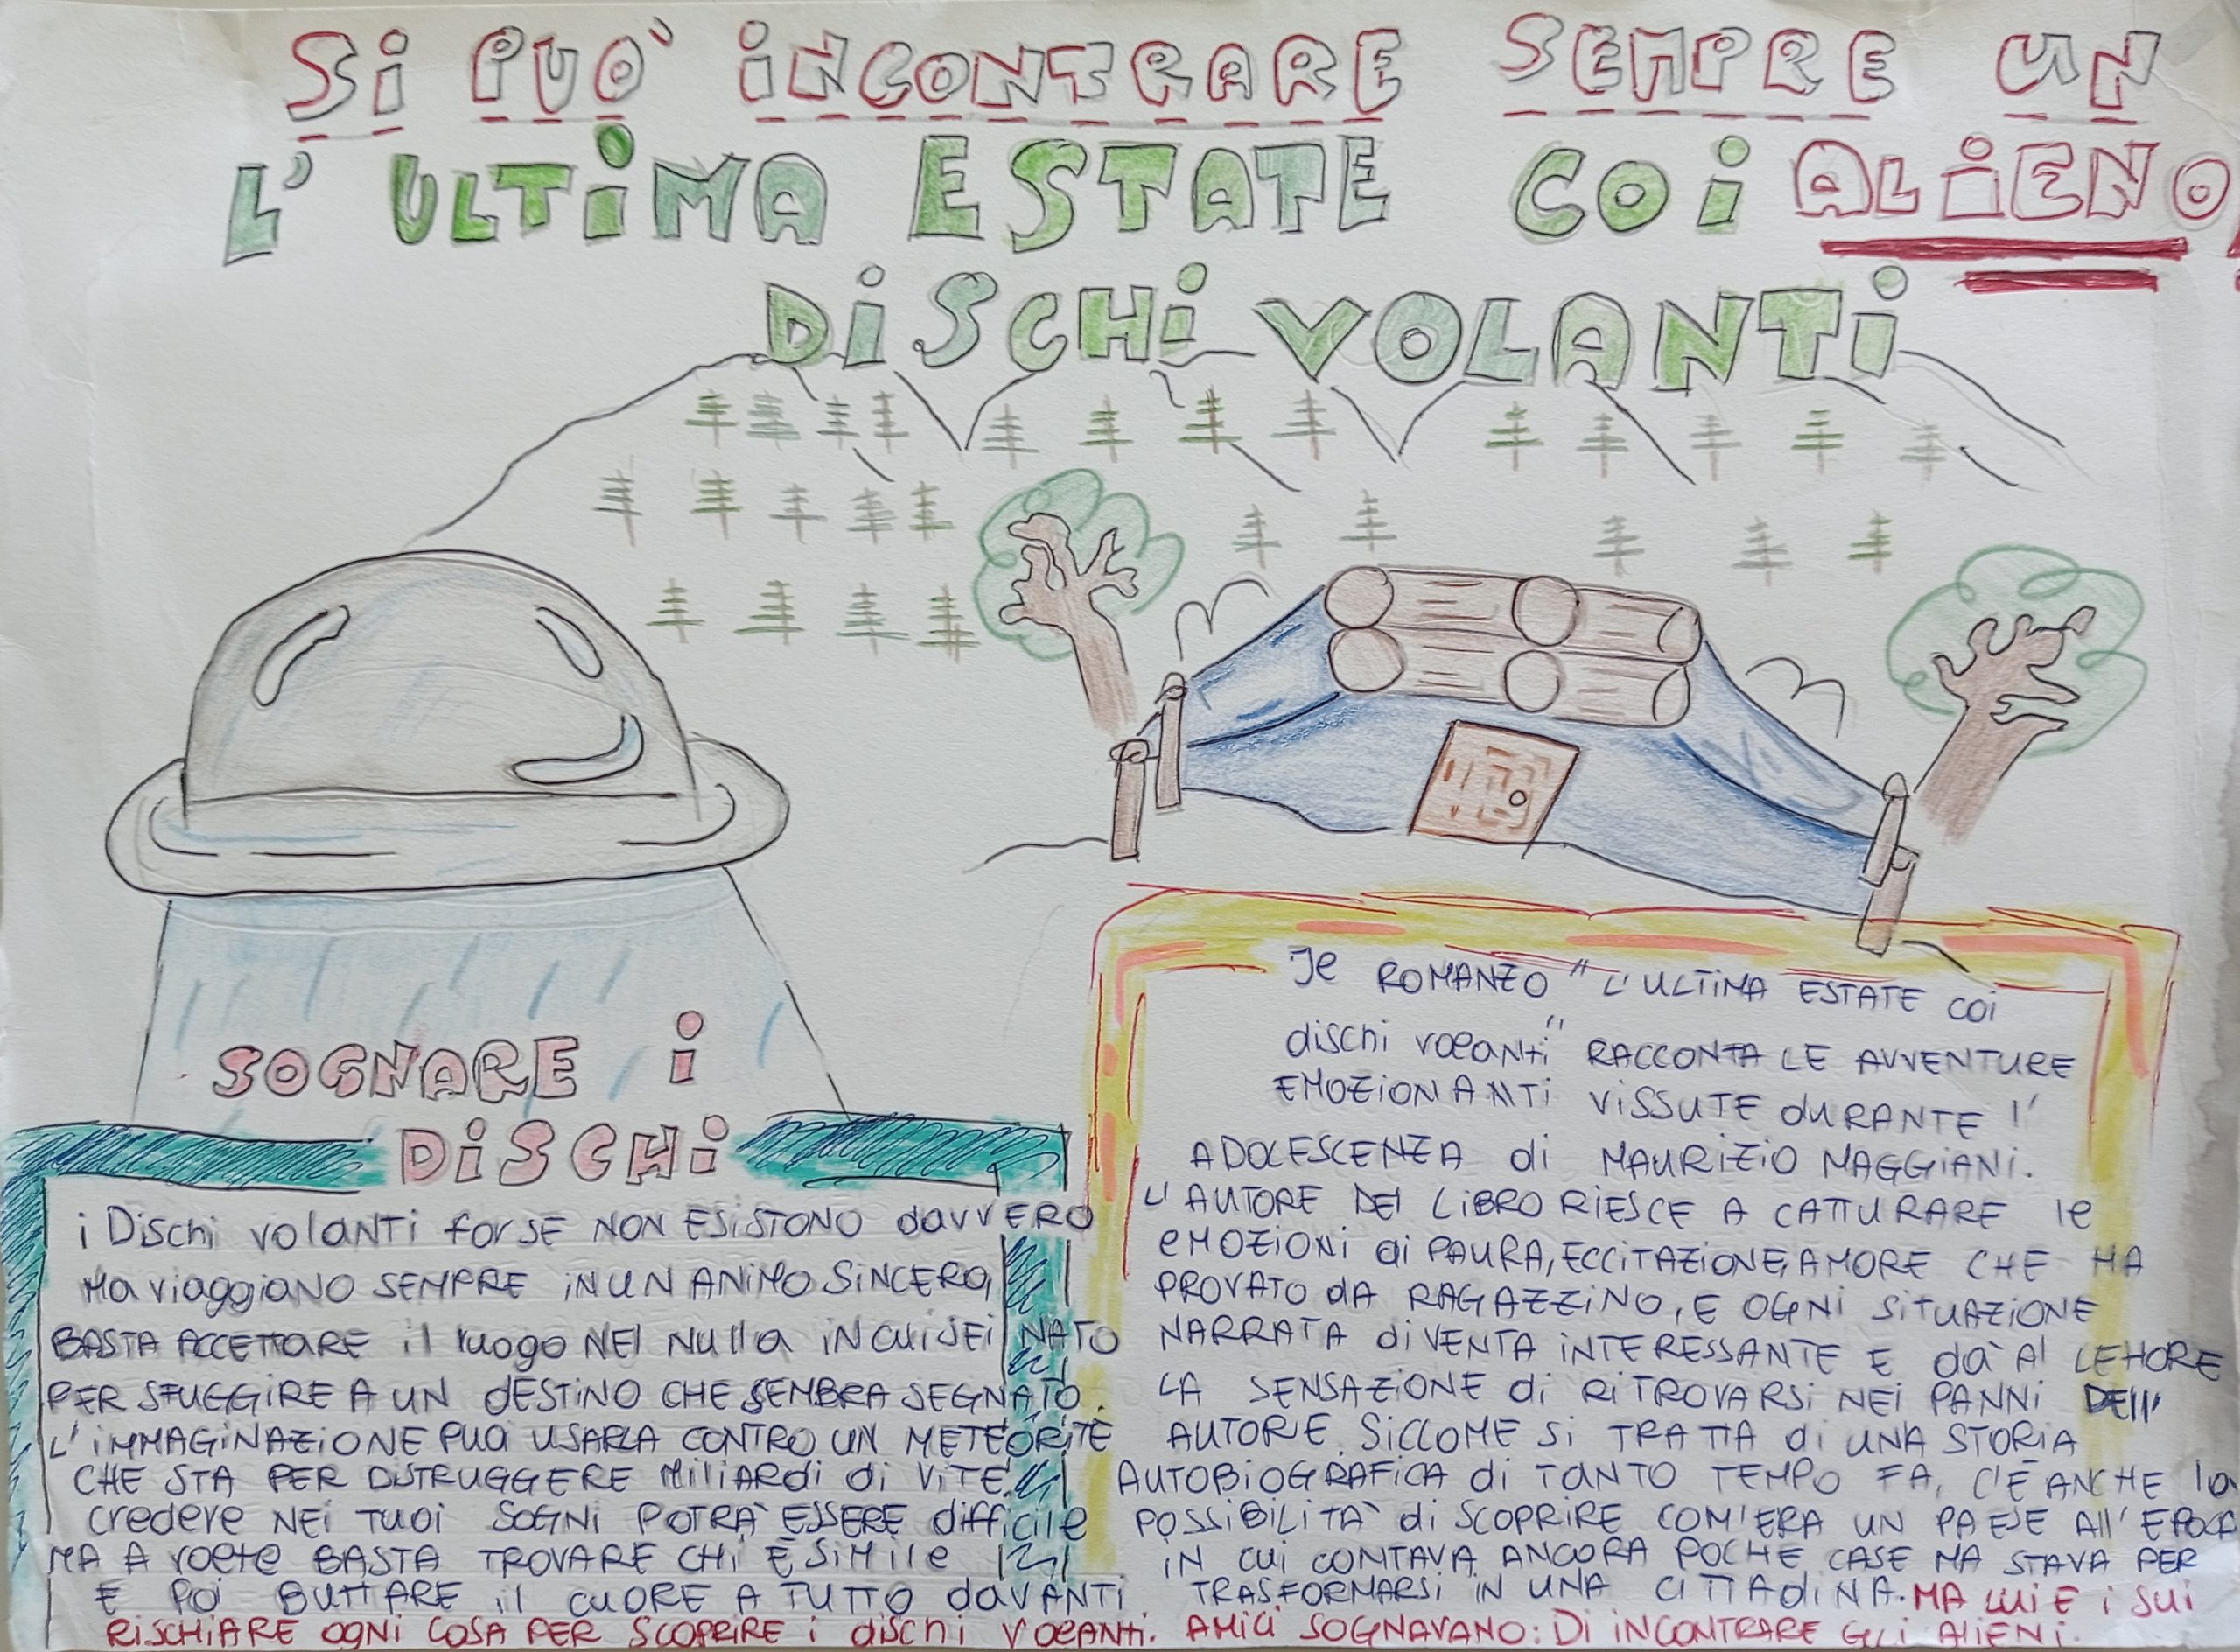 Si PUO' iNCONTRARE SEMPRE UN
ALiENO
L'ULTiMA ESTATE COi
DiSCHi VOLANTi
SOGNARE i
DiSCHi
i Dischi volANTi forSE NON ESiSTONO davvERO
Ma viaggiANO SEMPRE iN UN ANiMO SiNCERO,
BASTA ACCETTARE il luogo NEl Nulla iN CUi SEi NATO
PER SFUGGIRE A UN dESTiNO CHE SEMBRA SEGNATO.
L'iMMAGiNAZiONE PUOi USARLA CONTRO UN METEORiTE
CHE STA PER DiSTRUGGERE MiliARdi di ViTE.
Credere NEi TUOi SOGNi POTRA' ESSERE difficile
MA A volte BASTA TROVARE CHi È SiMile
E Poi BUTTARE il CUORE A TUTTO davANTi
RiSCHiARE OgNi COSA PER SCOPRiRE i dischi VolANTi.
Il ROMANZO "L'ULTiMA ESTATE COi
dischi volanti" RACCONTA LE AVVENTURE
EMOZiONANTi ViSSUTE dURANTE l'
ADOLESCENZA di MAURiZiO MAGGiANi.
L'AUTORE DEl LiBRO RiESCE A CATTURARE le
EMOZiONi di PAURA, ECCiTAZiONE, AMORE CHE HA
PROVATO dA RAGAZZiNO, E OGNi SiTUAZiONE
NARRATA diVENTA iNTERESSANTE E dà Al LETTORE
LA SENSAZiONE di RiTROVARSi NEi PANNi DEll'
AUTORE. SiCCOME Si TRATTA di UNA STORiA
AUTOBiOGRAFiCA di TANTO TEMPO FA, C'È ANCHE la
POSSiBiLiTA' di SCOPRiRE COM'ERA UN PAESE All'EPOCA
iN CUi CONTAVA ANCORA POCHE CASE MA STAVA PER
TRASFORMARSi iN UNA CiTTAdiNA. MA LUi E i SUi
AMiCi SOGNAVANO: Di iNCONTRARE GLi AliENi.